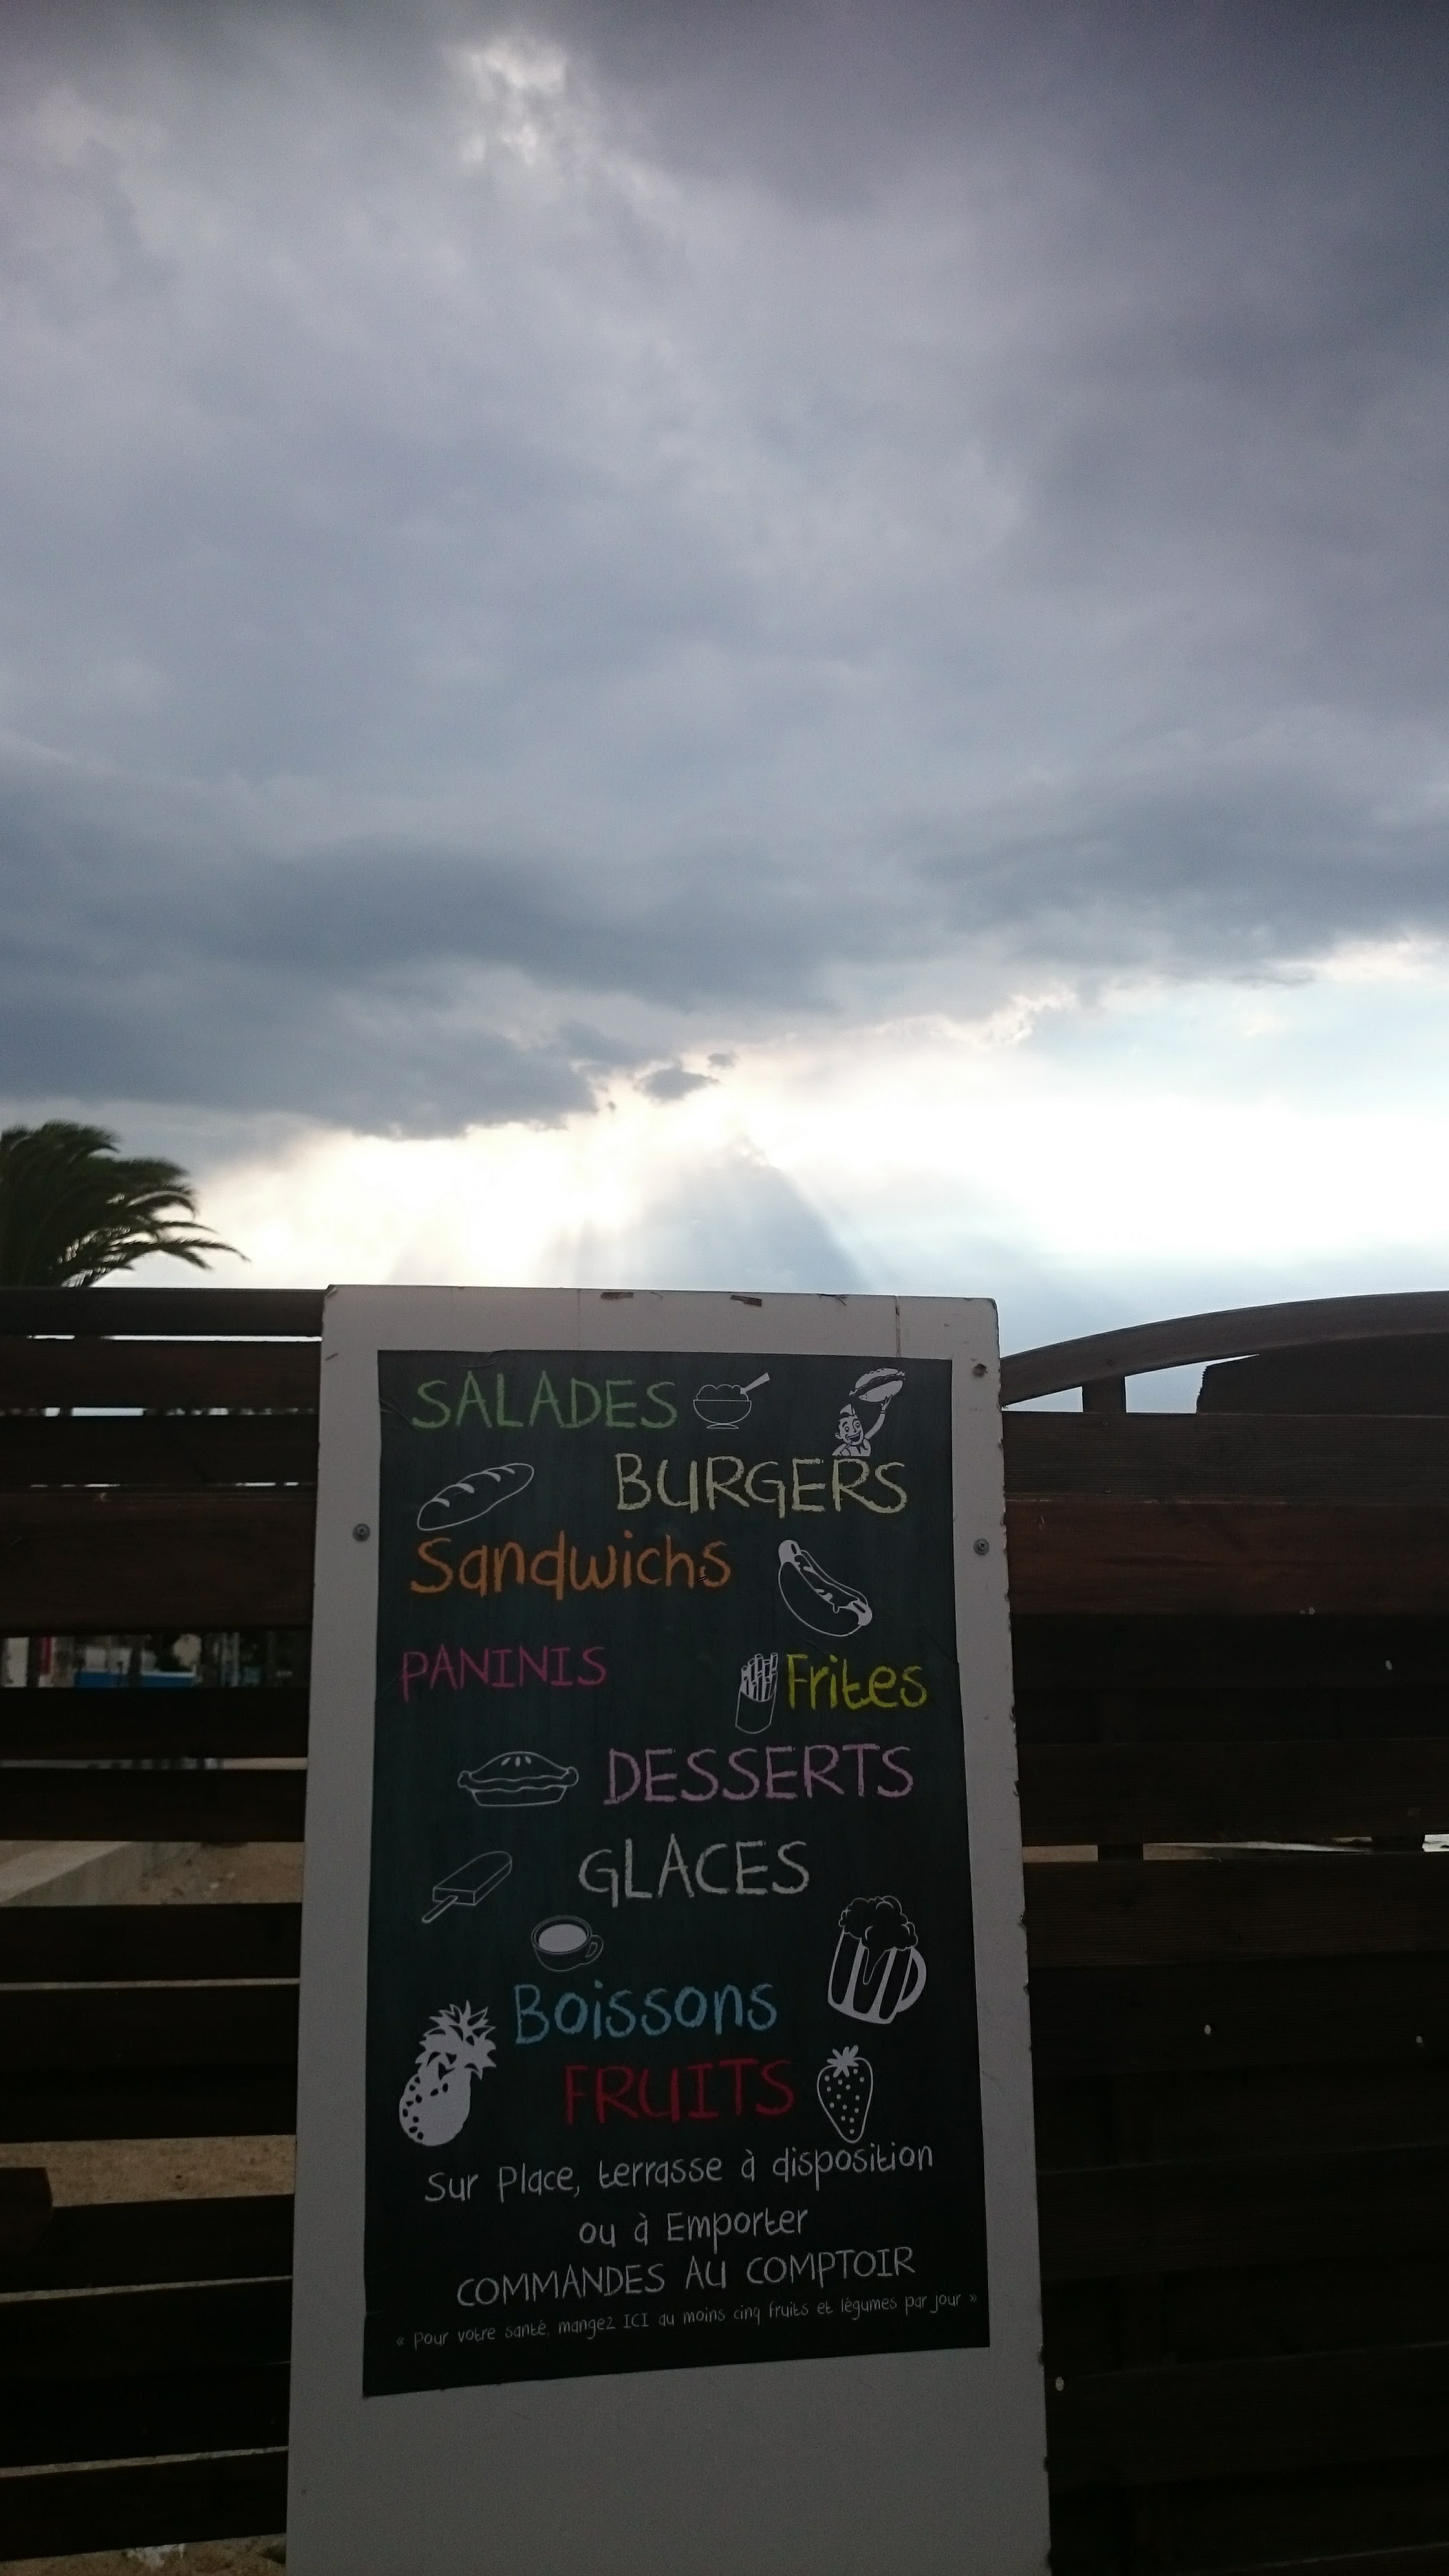 SALADES
BURGERS
Sandwichs
PANINIS
Frites
DESSERTS
GLACES
Boissons
FRUITS
Sur Place, terrasse à disposition
ou à Emporter
COMMANDES AU COMPTOIR
« Pour votre santé, mangez ICI au moins cinq fruits et légumes par jour »